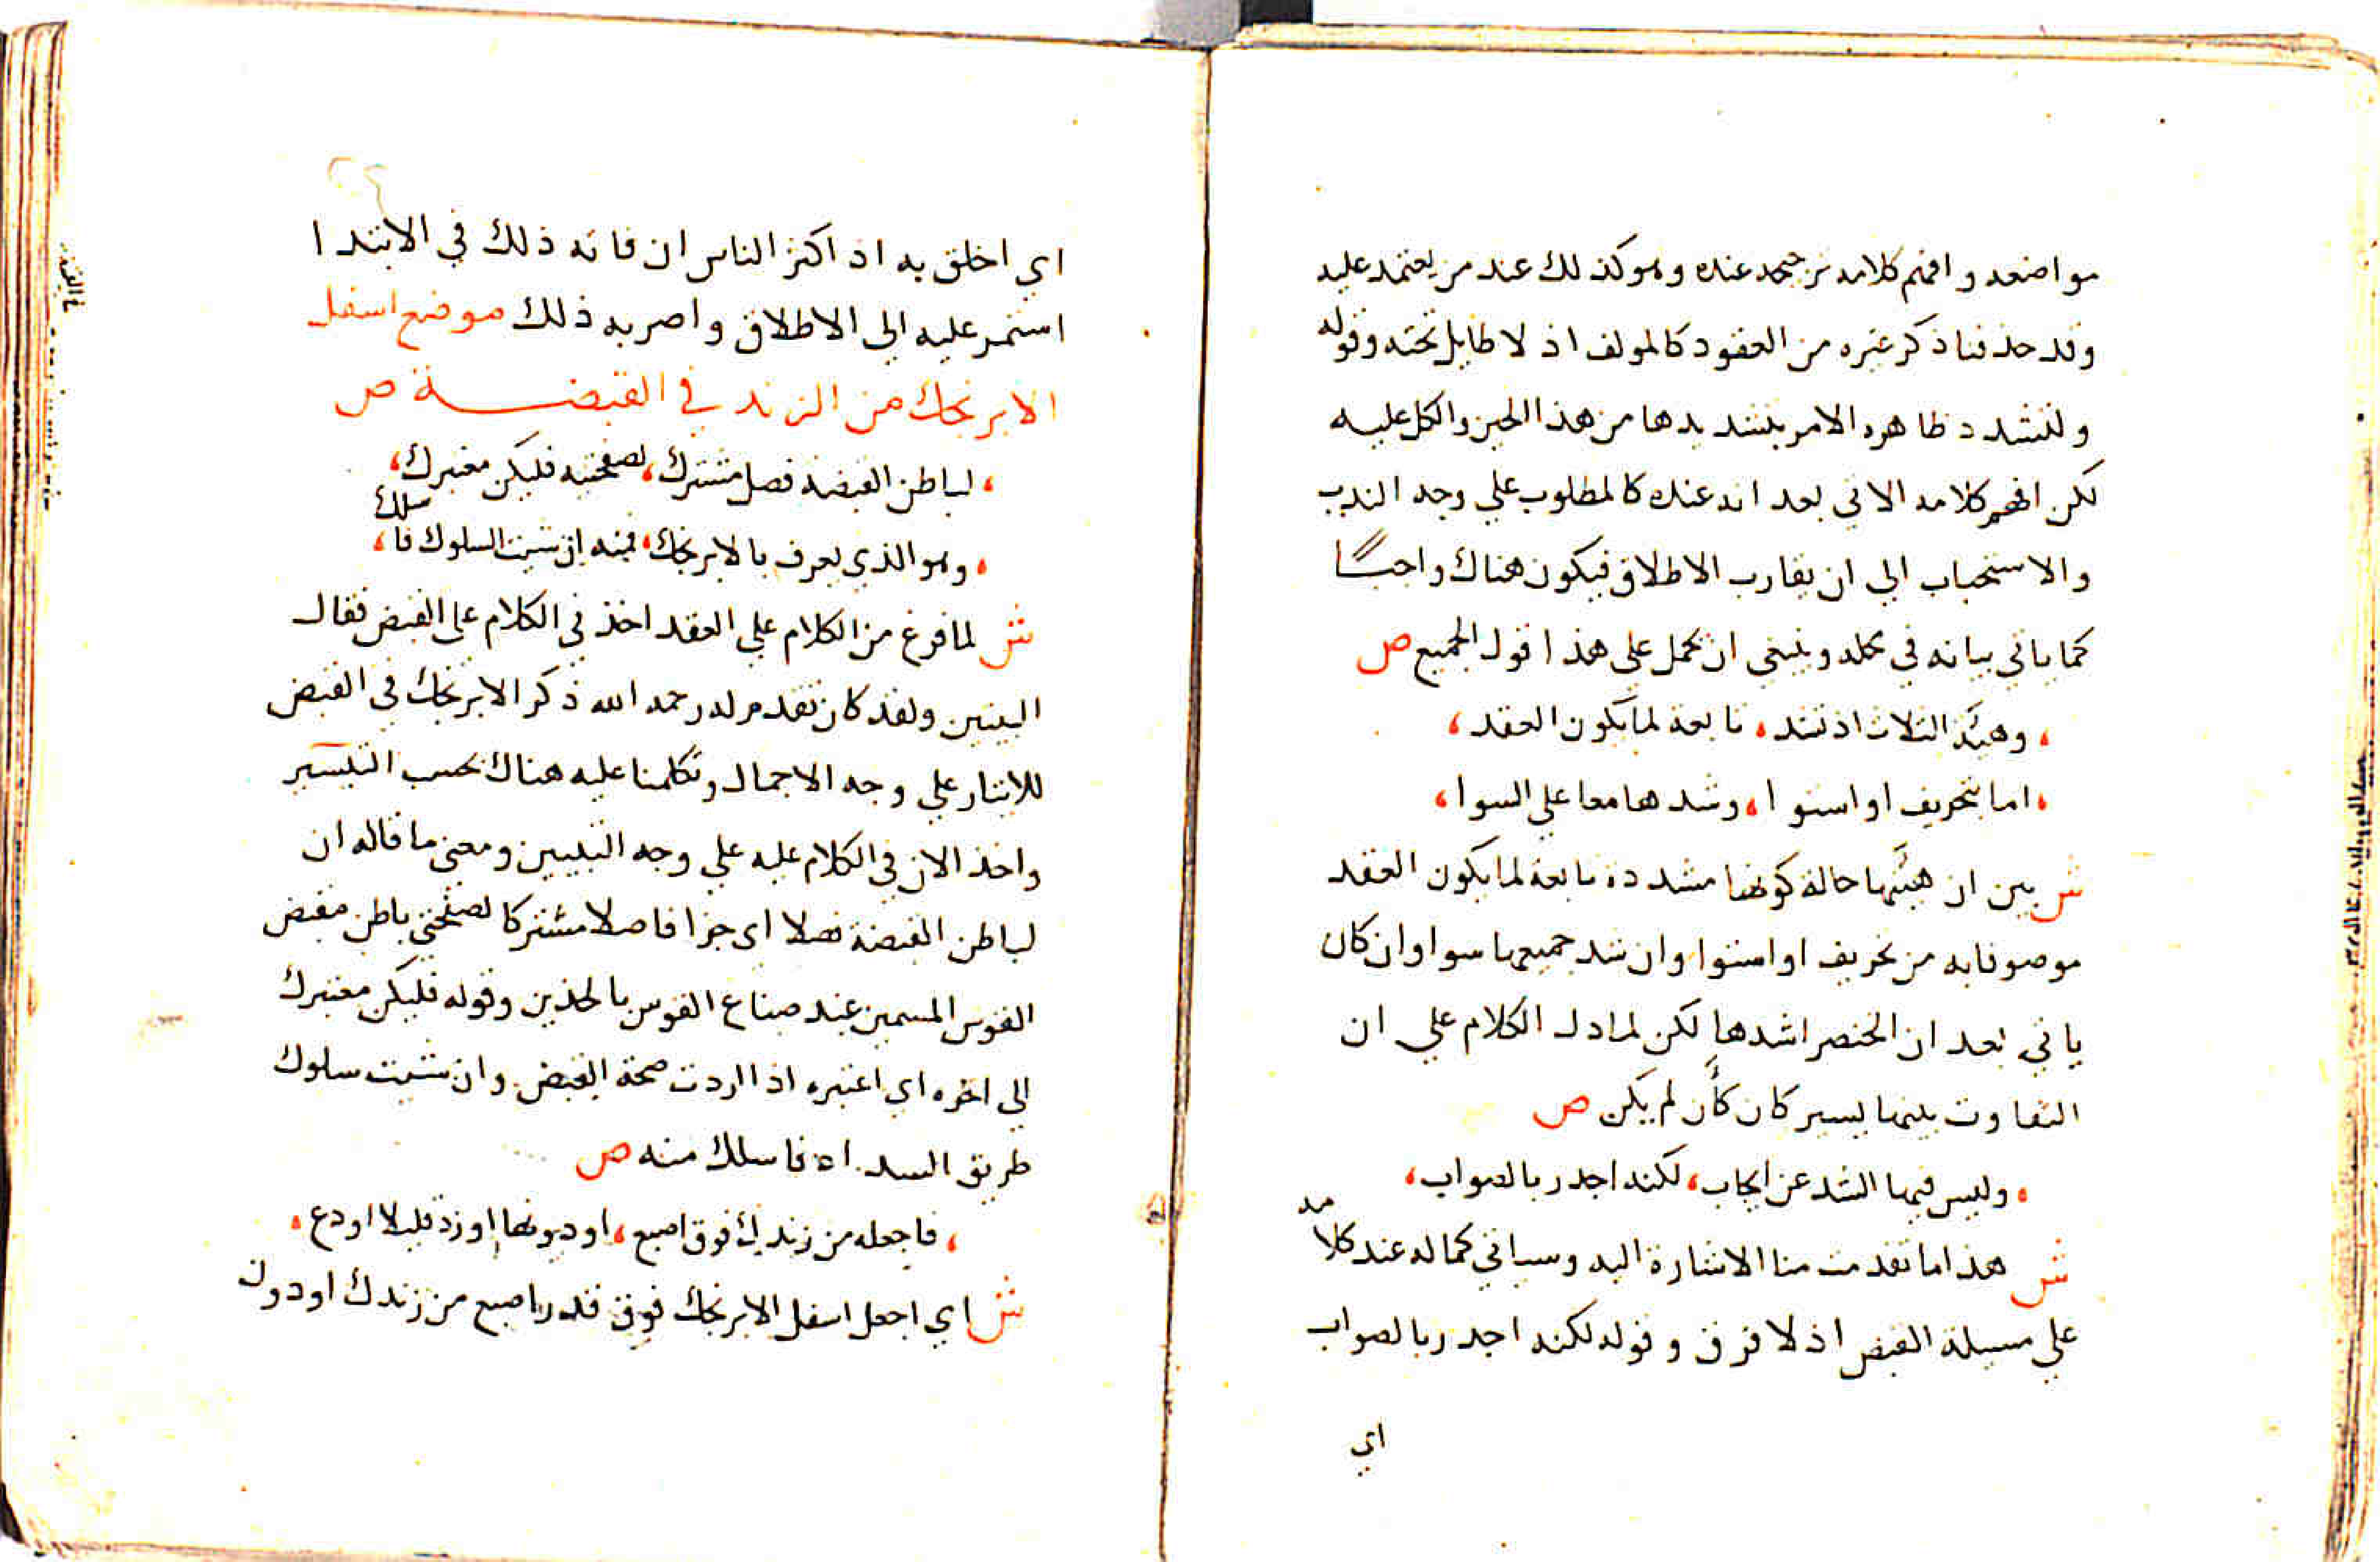 مواضعه وافهم كلامه ترجيحه عنده وهو كذلك عند من يعتمد عليه
وقد حذفنا ذكر غيره من العقود كالمولف اذ لا طايل تحته وقوله
ولتشدد ظاهره الامر بتشديدها من هذا الحين والكل عليه
لكن افهم كلامه الاتي بعد انه عنده كالمطلوب علي وجه الندب
والاستحباب الي ان يقارب الاطلاق فيكون هناك واجبًا
كما ياتي بيانه في محله وينبغي ان يحمل علي هذا قول الجميع ص
، وهيئة الثلاث اذ تشد ، تابعة لما يكون العقد ،
، اما بتحريف او استوا ، وشدها معا علي السوا ،
ش بين ان هيئتها حالة كونها مشددة تابعة لما يكون العقد
موصوفا به من تحريف او استوا وان شد جميعها سوا وان كان
ياتي بعد ان الخنصر اشدها لكن لما دل الكلام علي ان
التفاوت بينها يسير كان كأن لم يكن ص
، وليس فيها الشد عن ايجاب ، لكنه اجدر بالصواب ،
ش هذا ما تقدمت منا الاشارة اليه وسياتي كماله عند كلامه
علي مسيلة القبض اذ لا فرق وقوله لكنه اجدر بالصواب
اي
اي اخلق به اذ اكثر الناس ان فاته ذلك في الابتدا
استمر عليه الي الاطلاق واضر به ذلك موضع اسفل
الابرنجك من الزند في القبضة ص
، لباطن القبضة فصل مشترك ، لصفحتيه فليكن معتبرك ،
، وهو الذي يعرف بالابرنجك ، فمنه ان شيت السلوك فاسلك ،
ش لما فرغ من الكلام علي العقد اخذ في الكلام علي القبض فقال
البيتين ولقد كان تقدم له رحمه الله ذكر الابرنجك في القبض
للايتار علي وجه الاجمال وتكلمنا عليه هناك بحسب التيسير
واخذ الان في الكلام عليه علي وجه التبيين ومعنى ما قاله ان
لباطن القبضة فصلا اي جزا فاصلا مشتركا لصفحتي باطن مقبض
القوس المسمين عند صناع القوس بالخدين وقوله فليكن معتبرك
الي اخره اي اعتبره اذا اردت صحة القبض وان شيت سلوك
طريق السداد فاسلك منه ص
، فاجعله من زندك فوق اصبع ، او دونها او زد قليلا او دع ،
ش اي اجعل اسفل الابرنجك فوق قدر اصبع من زندك او دون